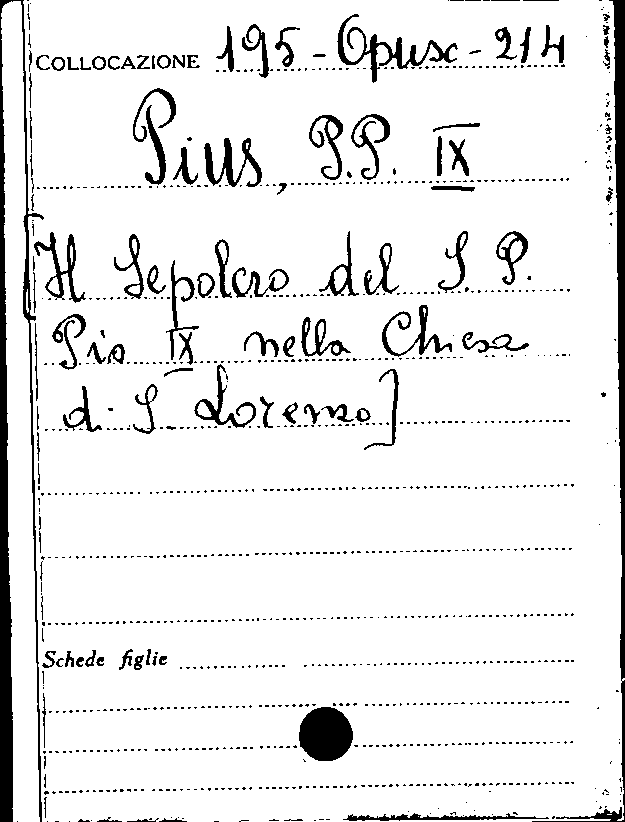 COLLOCAZIONE 195-Opusc-214
Pius, P.P. IX
[Il Sepolcro del S. P.
Pio IX nella Chiesa
di S. Lorenzo]
Schede figlie